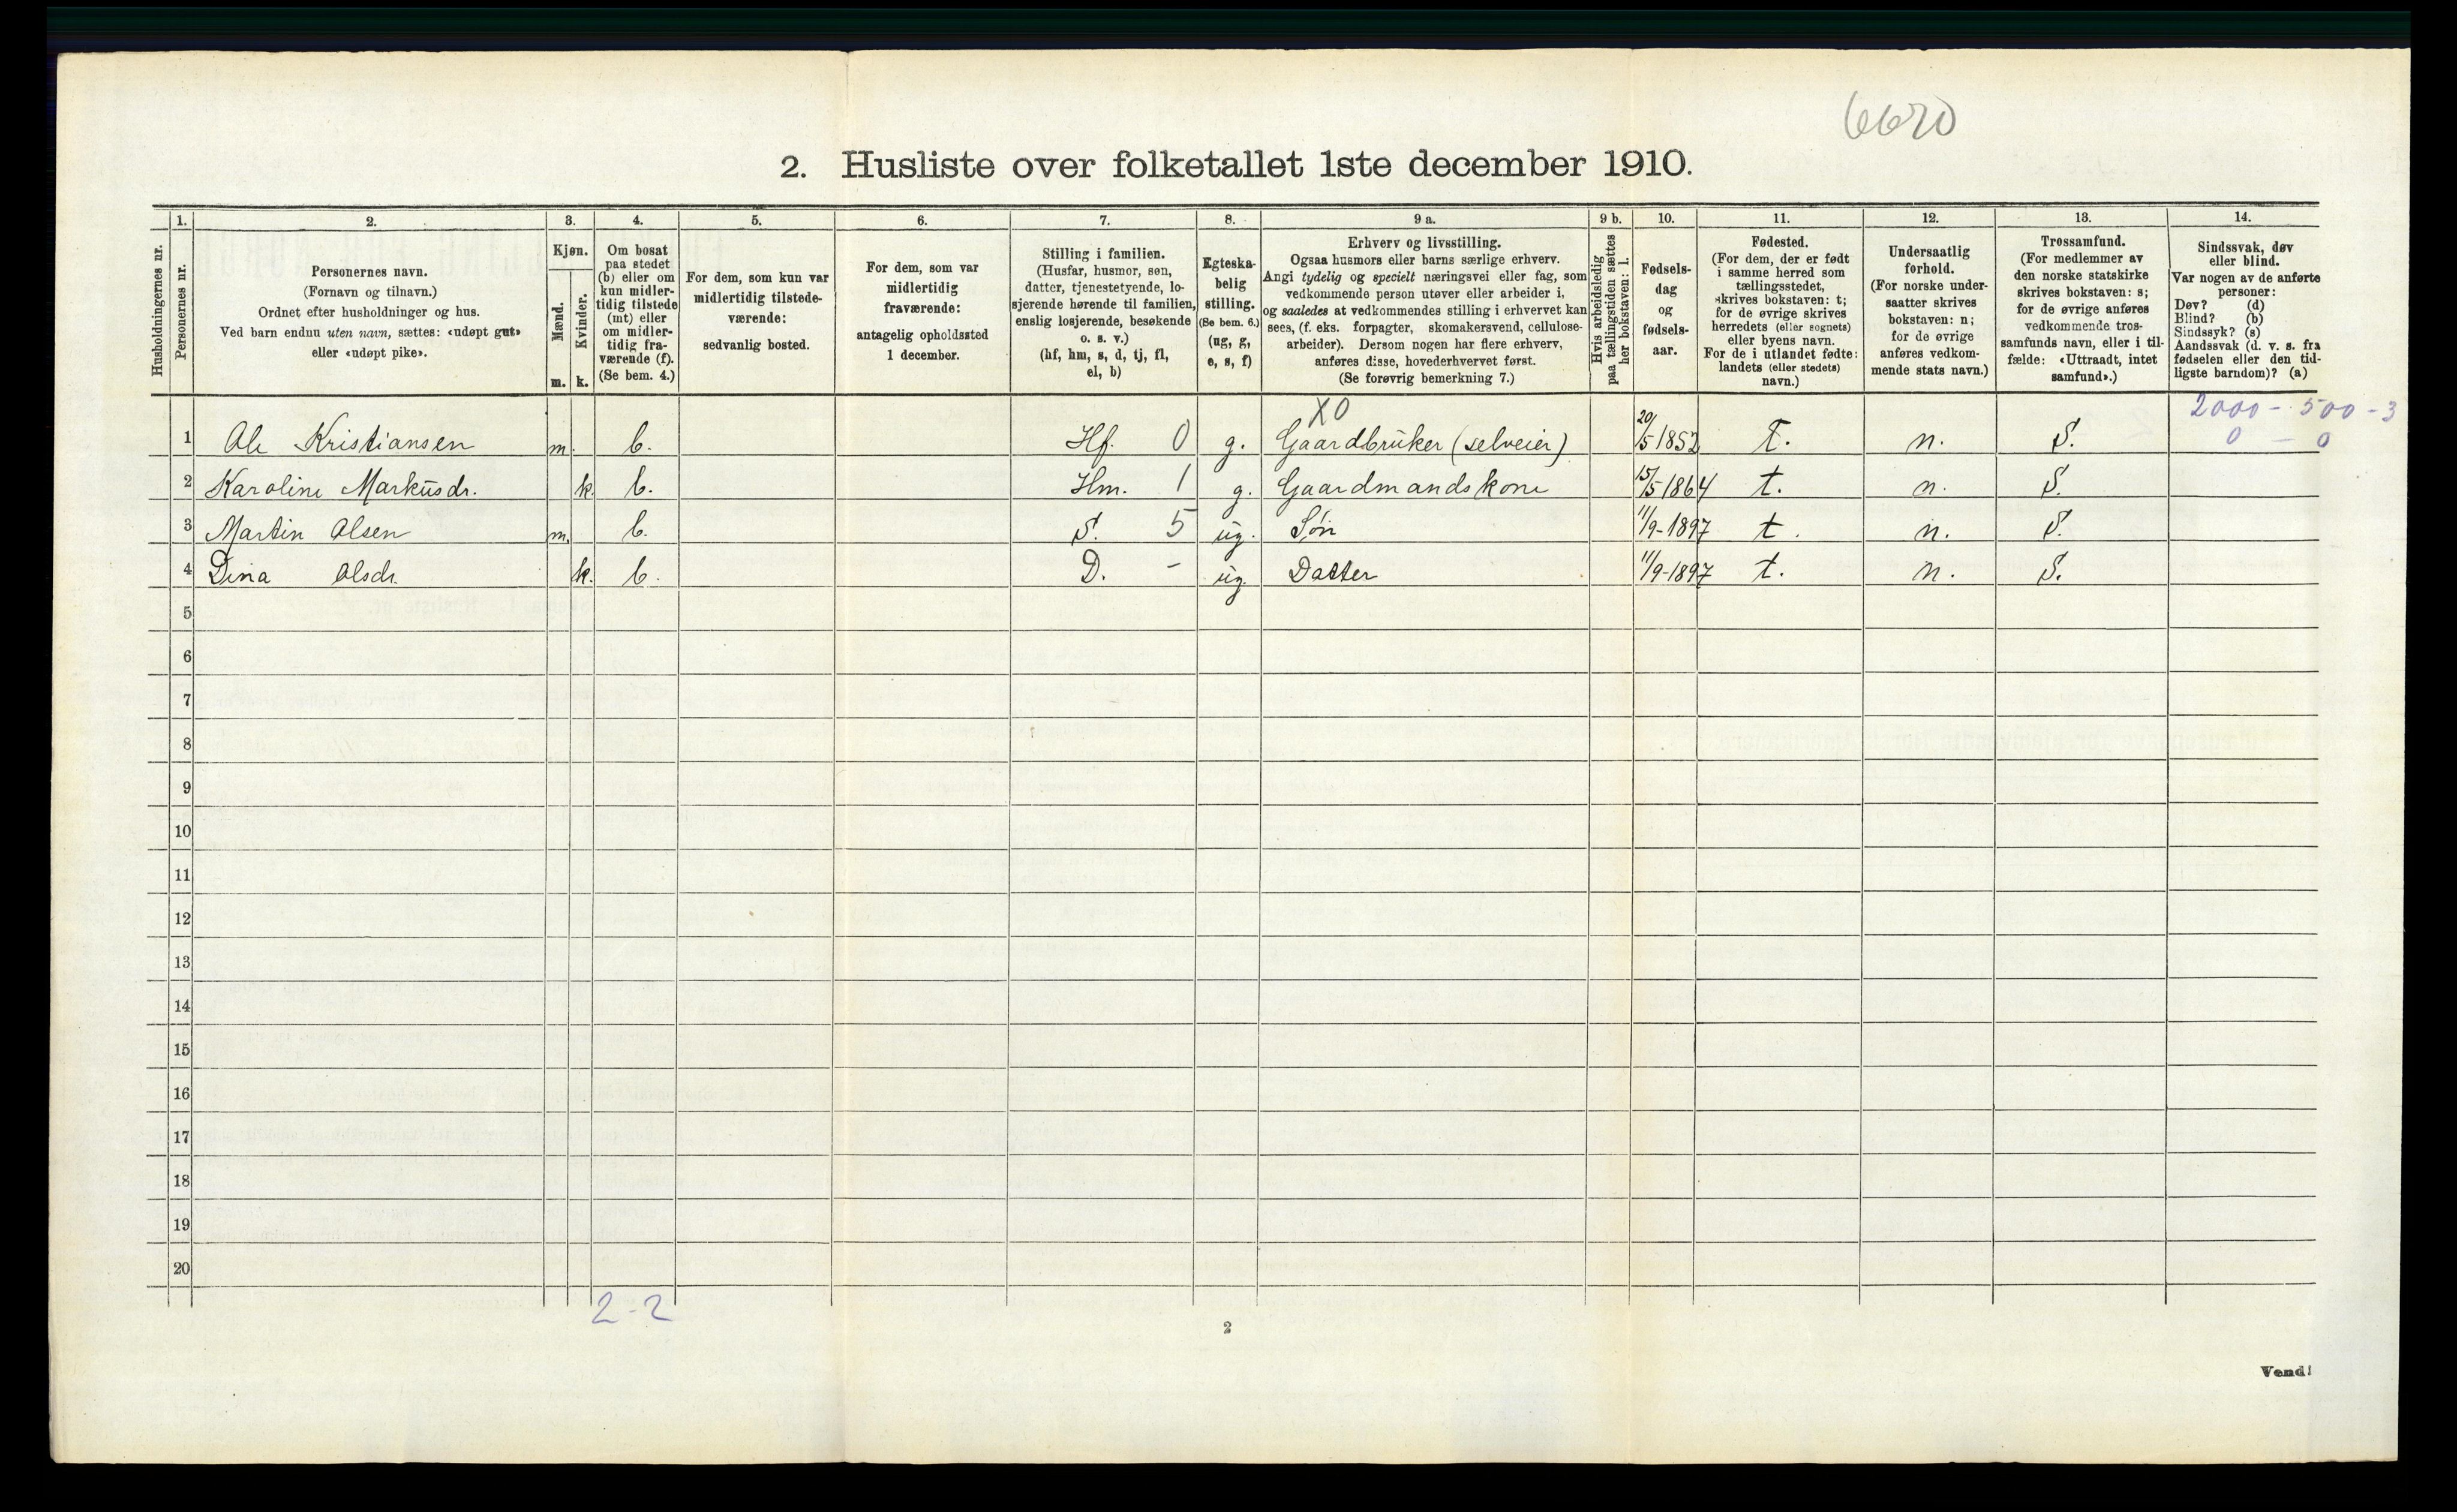 6620
2. Husliste over folketallet 1ste december 1910.
Husholdningernes nr.
1.
Personernes nr.
2.
Personernes navn.
(Fornavn og tilnavn.)
Ordnet efter husholdninger og hus.
Ved barn endnu uten navn, sættes: «udøpt gut»
eller «udøpt pike».
3.
Kjøn.
Mænd.
m.
Kvinder.
k.
4.
Om bosat
paa stedet
(b) eller om
kun midler-
tidig tilstede
(mt) eller
om midler-
tidig fra-
værende (f).
(Se bem. 4.)
5.
For dem, som kun var
midlertidig tilstede-
værende:
sedvanlig bosted.
6.
For dem, som var
midlertidig
fraværende:
antagelig opholdssted
1 december.
7.
Stilling i familien.
(Husfar, husmor, søn,
datter, tjenestetyende, lo-
sjerende hørende til familien,
enslig losjerende, besøkende
o. s. v.)
(hf, hm, s, d, tj, fl,
el, b)
8.
Egteska-
belig
stilling.
(Se bem. 6.)
(ug, g,
e, s, f)
9 a.
Erhverv og livsstilling.
Ogsaa husmors eller barns særlige erhverv.
Angi tydelig og specielt næringsvei eller fag, som
vedkommende person utøver eller arbeider i,
og saaledes at vedkommendes stilling i erhvervet kan
sees, (f. eks. forpagter, skomakersvend, cellulose-
arbeider). Dersom nogen har flere erhverv,
anføres disse, hovederhvervet først.
(Se forøvrig bemerkning 7.)
9 b.
Hvis arbeidsledig
paa tællingstiden sættes
her bokstaven: l.
10.
Fødsels-
dag
og
fødsels-
aar.
11.
Fødested.
(For dem, der er født
i samme herred som
tællingsstedet,
skrives bokstaven: t;
for de øvrige skrives
herredets (eller sognets)
eller byens navn.
For de i utlandet fødte:
landets (eller stedets)
navn.)
12.
Undersaatlig
forhold.
(For norske under-
saatter skrives
bokstaven: n;
for de øvrige
anføres vedkom-
mende stats navn.)
13.
Trossamfund.
(For medlemmer av
den norske statskirke
skrives bokstaven: s;
for de øvrige anføres
vedkommende tros-
samfunds navn, eller i til-
fælde: «Uttraadt, intet
samfund».)
14.
Sindssvak, døv
eller blind.
Var nogen av de anførte
personer:
Døv? (d)
Blind? (b)
Sindssyk? (s)
Aandssvak (d. v. s. fra
fødselen eller den tid-
ligste barndom)? (a)
X0
2000 - 500 - 3
1 Ole Kristiansen m. b. Hf. 0 g. Gaardbruker (selveier) 20/5 1852 T. n. S. 0 - 0
2 Karoline Markusdr. k. b. Hm. 1 g. Gaardmandskone 15/5 1864 t. n. S.
3 Martin Olsen m. b. S. 5 ug. Søn 11/9-1897 t. n. S.
4 Dina Olsdr. k. b. D. - ug. Datter 11/9-1897 t. n. S.
5
6
7
8
9
10
11
12
13
14
15
16
17
18
19
20
2-2
2
Vend!